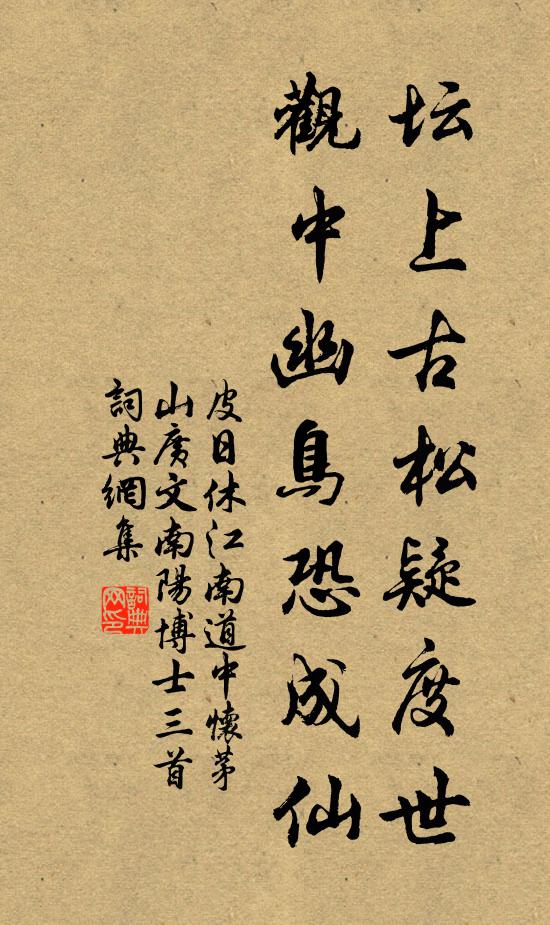 坛上古松疑度世
觀中幽鳥恐成仙
皮日休江南道中懷茅
山廣文南陽博士三首
詞典網集
詞典网印